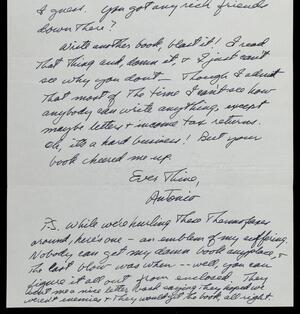 I guess. You got any rich friends
down there?
Write another book, blast it! I read
that thing end, damn it, & I just can't
see why you don't — Though I admit
that most of the time I can't see how
anybody can write anything, except
maybe letters & income tax returns.
Oh, it's a hard business! But your
book cheered me up.
Ever Thine,
Antonio
P.S. While we're hurling these Thermoses
around, here's one — an emblem of my suffering.
Nobody can get my damn book anyplace, &
the last blow was when — well, you can
figure it all out from enclosed. They
sent me a nice letter, back saying they hoped we
weren't enemies & they would get the book, all right